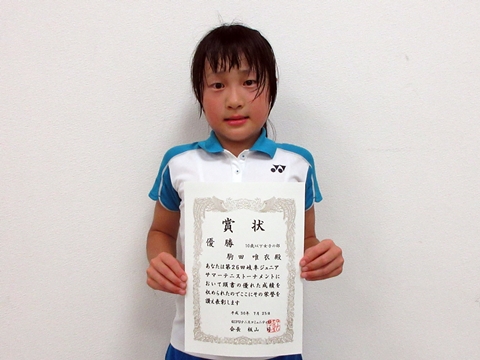 YONEX
賞状
優勝 10歳以下女子の部
駒田 唯衣 殿
あなたは第26回岐阜ジュニア
サマーテニストーナメントに
おいて頭書の優れた成績を
収められたのでここにその栄誉を
讃え表彰します
平成 30年 7月 25日
会長 梶山